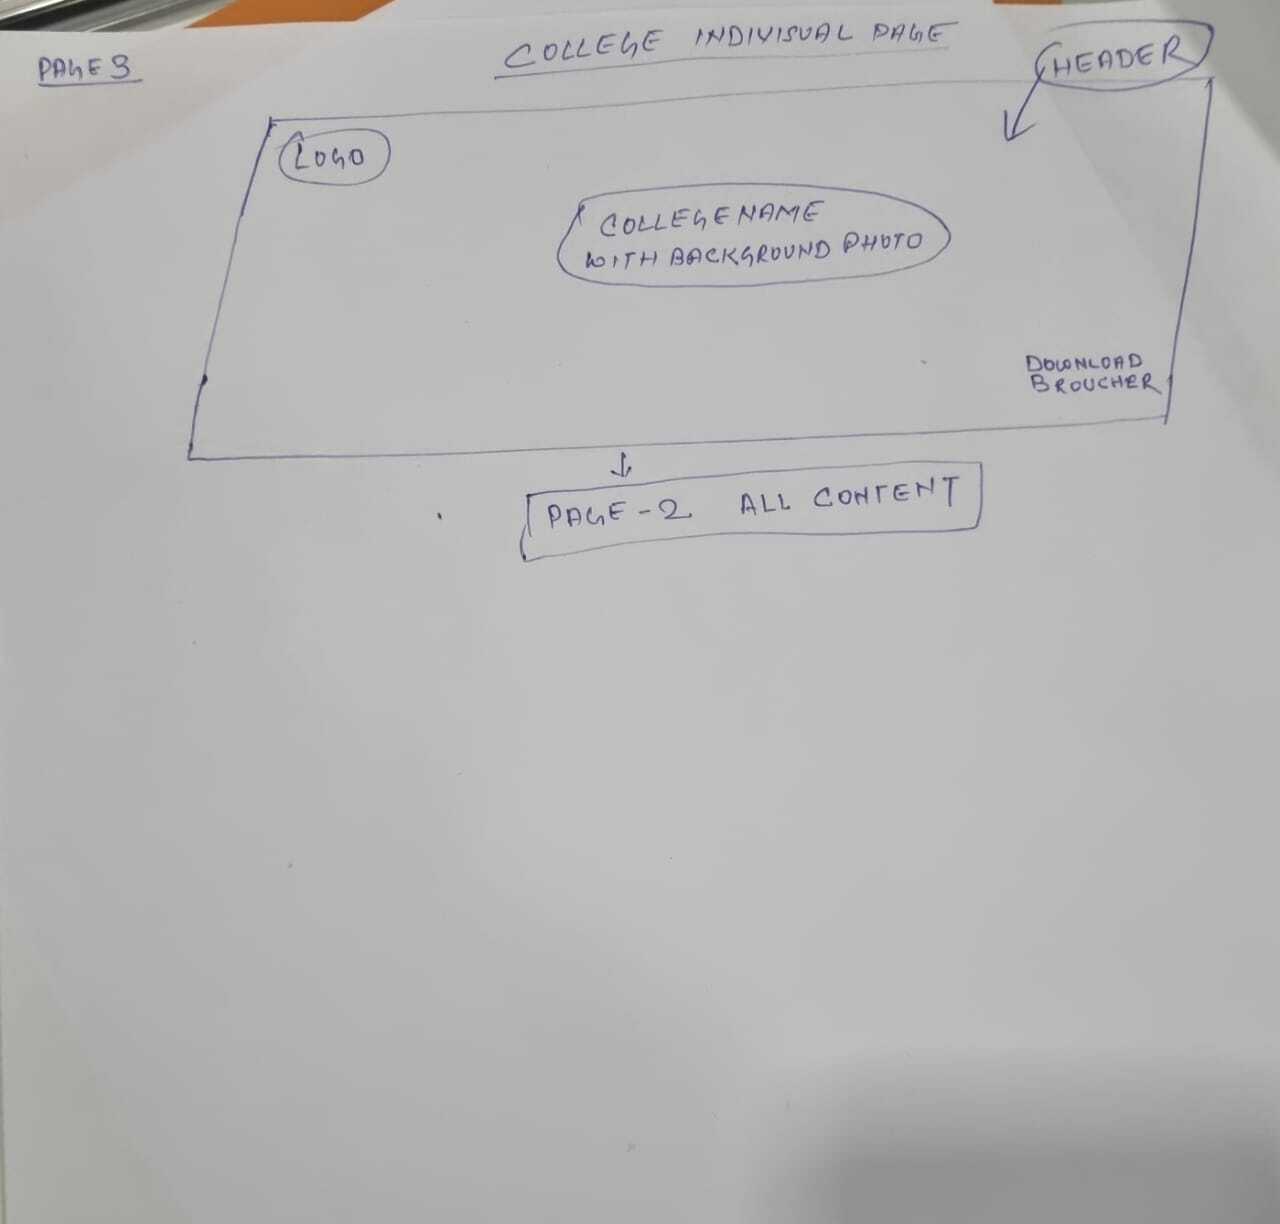 PAGE 3
COLLEGE INDIVISUAL PAGE
HEADER
LOGO
COLLEGE NAME
WITH BACKGROUND PHOTO
DOWNLOAD
BROUCHER
PAGE - 2 ALL CONTENT